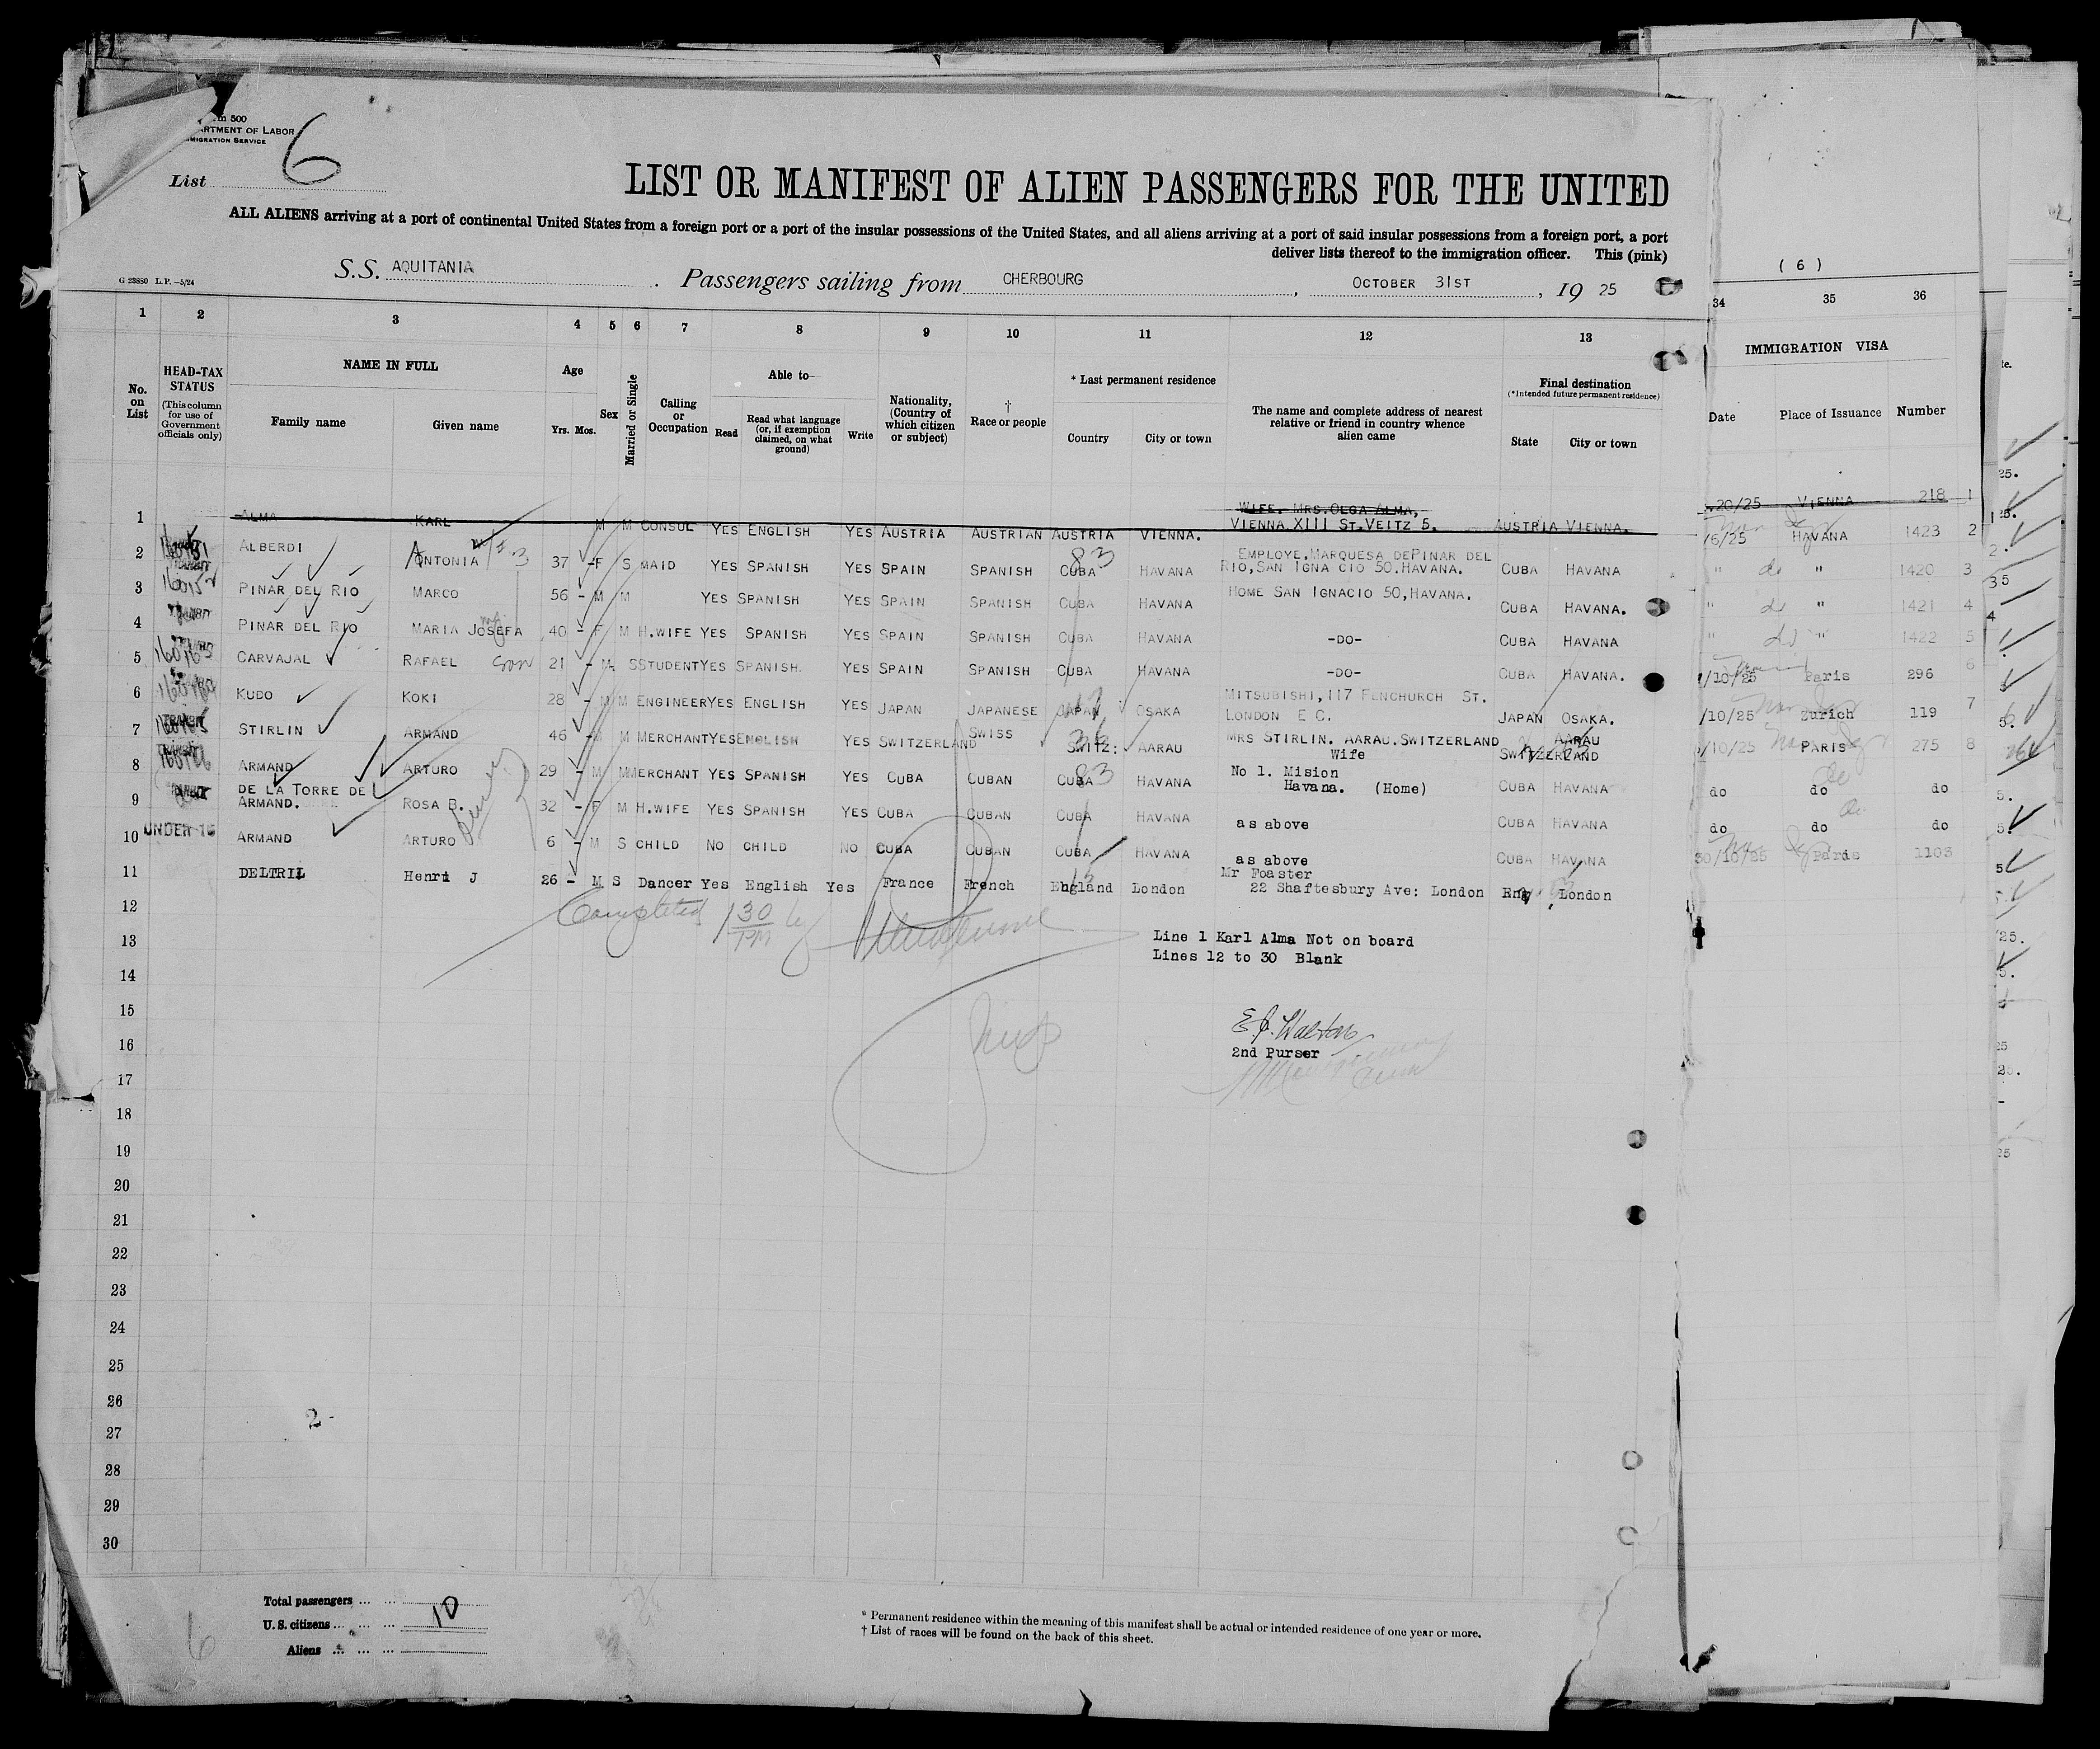 500
ARTMENT OF LABOR
MIGRATION SERVICE
6
List
LIST OR MANIFEST OF ALIEN PASSENGERS FOR THE UNITED
ALL ALIENS arriving at a port of continental United States from a foreign port or a port of the insular possessions of the United States, and all aliens arriving at a port of said insular possessions from a foreign port, a port
deliver lists thereof to the immigration officer. This (pink)
G 23880 L.P.—5/24
S.S. AQUITANIA . Passengers sailing from CHERBOURG , OCTOBER 31ST , 19 25
( 6 )
1 2 3 4 5 6 7 8 9 10 11 12 13 34 35 36
No. on List
HEAD-TAX STATUS (This column for use of Government officials only)
NAME IN FULL
Family name
Given name
Age
Yrs. Mos.
Sex
Married or Single
Calling or Occupation
Able to—
Read
Read what language (or, if exemption claimed, on what ground)
Write
Nationality, (Country of which citizen or subject)
† Race or people
* Last permanent residence
Country
City or town
The name and complete address of nearest relative or friend in country whence alien came
Final destination
(*Intended future permanent residence)
State
City or town
IMMIGRATION VISA
Date
Place of Issuance
Number
WIFE. MRS.OLGA ALMA,
1 ALMA KARL M M CONSUL YES ENGLISH YES AUSTRIA AUSTRIAN AUSTRIA VIENNA. VIENNA.XIII ST.VEITZ 5. AUSTRIA VIENNA. 20/25 VIENNA 218 1
EMPLOYE,MARQUESA DEPINAR DEL
2 ALBERDI ANTONIA 37 - F S MAID YES SPANISH YES SPAIN SPANISH CUBA HAVANA RIO,SAN IGNA CIO 50.HAVANA. CUBA HAVANA /6/25 HAVANA 1423 2
3 PINAR DEL RIO MARCO 56 - M M YES SPANISH YES SPAIN SPANISH CUBA HAVANA HOME SAN IGNACIO 50,HAVANA. CUBA HAVANA. " " 1420 3
4 PINAR DEL RIO MARIA JOSEFA 40 - F M H.WIFE YES SPANISH YES SPAIN SPANISH CUBA HAVANA -DO- CUBA HAVANA " " 1421 4
5 CARVAJAL RAFAEL son 21 - M. S STUDENT YES SPANISH. YES SPAIN SPANISH CUBA HAVANA -DO- CUBA HAVANA. " " 1422 5
6 KUDO KOKI 28 - M M ENGINEER YES ENGLISH YES JAPAN JAPANESE JAPAN OSAKA MITSUBISHI,117 FENCHURCH ST.
LONDON E C. JAPAN OSAKA. /10/25 Paris 296 6
7 STIRLIN ARMAND 46 - M M MERCHANT YES ENGLISH YES SWITZERLAND SWISS SWITZ: AARAU MRS STIRLIN. AARAU.SWITZERLAND
Wife AARAU SWITZERLAND /10/25 Zurich 119 7
8 ARMAND ARTURO 29 - M M MERCHANT YES SPANISH YES CUBA CUBAN CUBA HAVANA No 1. Mision
Havana. (Home) CUBA HAVANA /10/25 PARIS 275 8
DE LA TORRE DE
9 ARMAND. ROSA B. 32 - F M H.WIFE YES SPANISH YES CUBA CUBAN CUBA HAVANA as above CUBA HAVANA do do do
10 UNDER 16 ARMAND ARTURO 6 - M S CHILD NO CHILD NO CUBA CUBAN CUBA HAVANA as above CUBA HAVANA do do do
Mr Foaster
11 DELTRIL Henri J 26 - M S Dancer Yes English Yes France French England London 22 Shaftesbury Ave: London Eng London 30/10/25 Paris 1103
12
Completed 1 30 PM by
13
Line 1 Karl Alma Not on board
Lines 12 to 30 Blank
14
15
E J. Walton
16
2nd Purser
17
18
19
20
21
22
23
24
25
26
2-
27
28
29
30
Total passengers
10
U. S. citizens
Aliens
6
* Permanent residence within the meaning of this manifest shall be actual or intended residence of one year or more.
† List of races will be found on the back of this sheet.